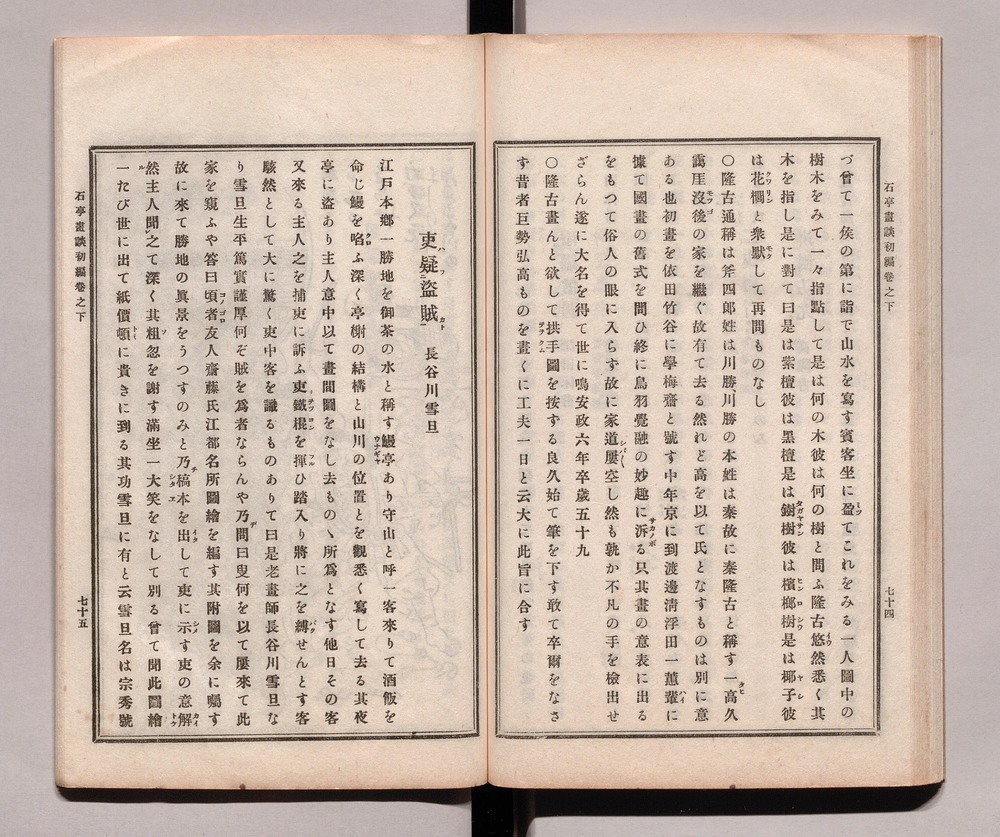 石亭畫談初編卷之下
七十四
づ曾て一侯の第に詣で山水を寫す賓客坐に盈てこれをみる一人圖中の
樹木をみて一々指點して是は何の木彼は何の樹と問ふ隆古悠然悉く其
木を指し是に對て曰是は紫檀彼は黑檀是は鐵樹彼は檳榔樹是は椰子彼
は花櫚と衆默して再問ものなし
〇隆古通稱は斧四郎姓は川勝川勝の本姓は秦故に秦隆古と稱す一高久
靄厓沒後の家を繼ぐ故有て去る然れど高を以て氏となすものは別に意
ある也初畫を依田竹谷に學梅齋と號す中年京に到渡邊淸浮田一蕙輩に
據て國畫の舊式を問ひ終に鳥羽覺融の妙趣に泝る只其畫の意表に出る
をもつて俗人の眼に入らず故に家道屢空し然も孰か不凡の手を檢出せ
ざらん遂に大名を得て世に鳴安政六年卒歲五十九
〇隆古畫んと欲して拱手圖を按ずる良久始て筆を下す敢て卒爾をなさ
す昔者巨勢弘高ものを畫くに工夫一日と云大に此旨に合す
吏疑盜賊 長谷川雪旦
江戸本鄉一勝地を御茶の水と稱す鰻亭あり守山と呼一客來りて酒飯を
命じ鰻を啗ふ深く亭榭の結構と山川の位置とを觀悉く寫して去る其夜
亭に盜あり主人意中以て畫間圖をなし去もの丶所爲となす他日その客
又來る主人之を捕吏に訴ふ吏鐵棍を揮ひ踏入り將に之を縛せんとす客
駭然として大に驚く吏中客を識るものありて曰是老畫師長谷川雪旦な
り雪旦生平篤實謹厚何ぞ賊を爲者ならんや乃問曰叟何を以て屢來て此
家を窺ふや答曰頃者友人齋藤氏江都名所圖繪を編す其附圖を余に囑す
故に來て勝地の眞景をうつすのみと乃稿本を出して吏に示す吏の意解
然主人聞之て深く其粗忽を謝す滿坐一大笑をなして別る曾て聞此圖繪
一たび世に出て紙價頓に貴きに到る其功雪旦に有と云雪旦名は宗秀號
石亭畫談初編卷之下
七十五